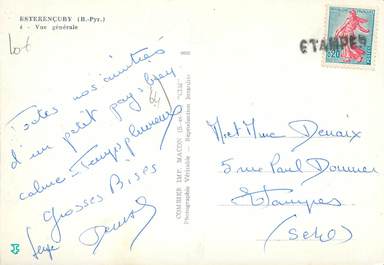 ESTERENÇUBY (B.-Pyr.)
4 - Vue générale
ETAMPES
0,20
Toutes nos amitiés
d'un petit pays bien
calme - Temps pluvieux
Grosses Bises
Serge
COMBIER IMP. MACON (S.-et-L.) "CIM"
Photographie Véritable - Reproduction Interdite
M et Mme Denaix
5 rue Paul Doumer
Etampes
(S et O)